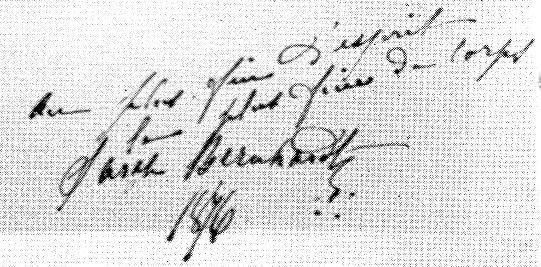 Au plus fin d'esprit
la plus fine de corps
Sarah Bernhardt
1876